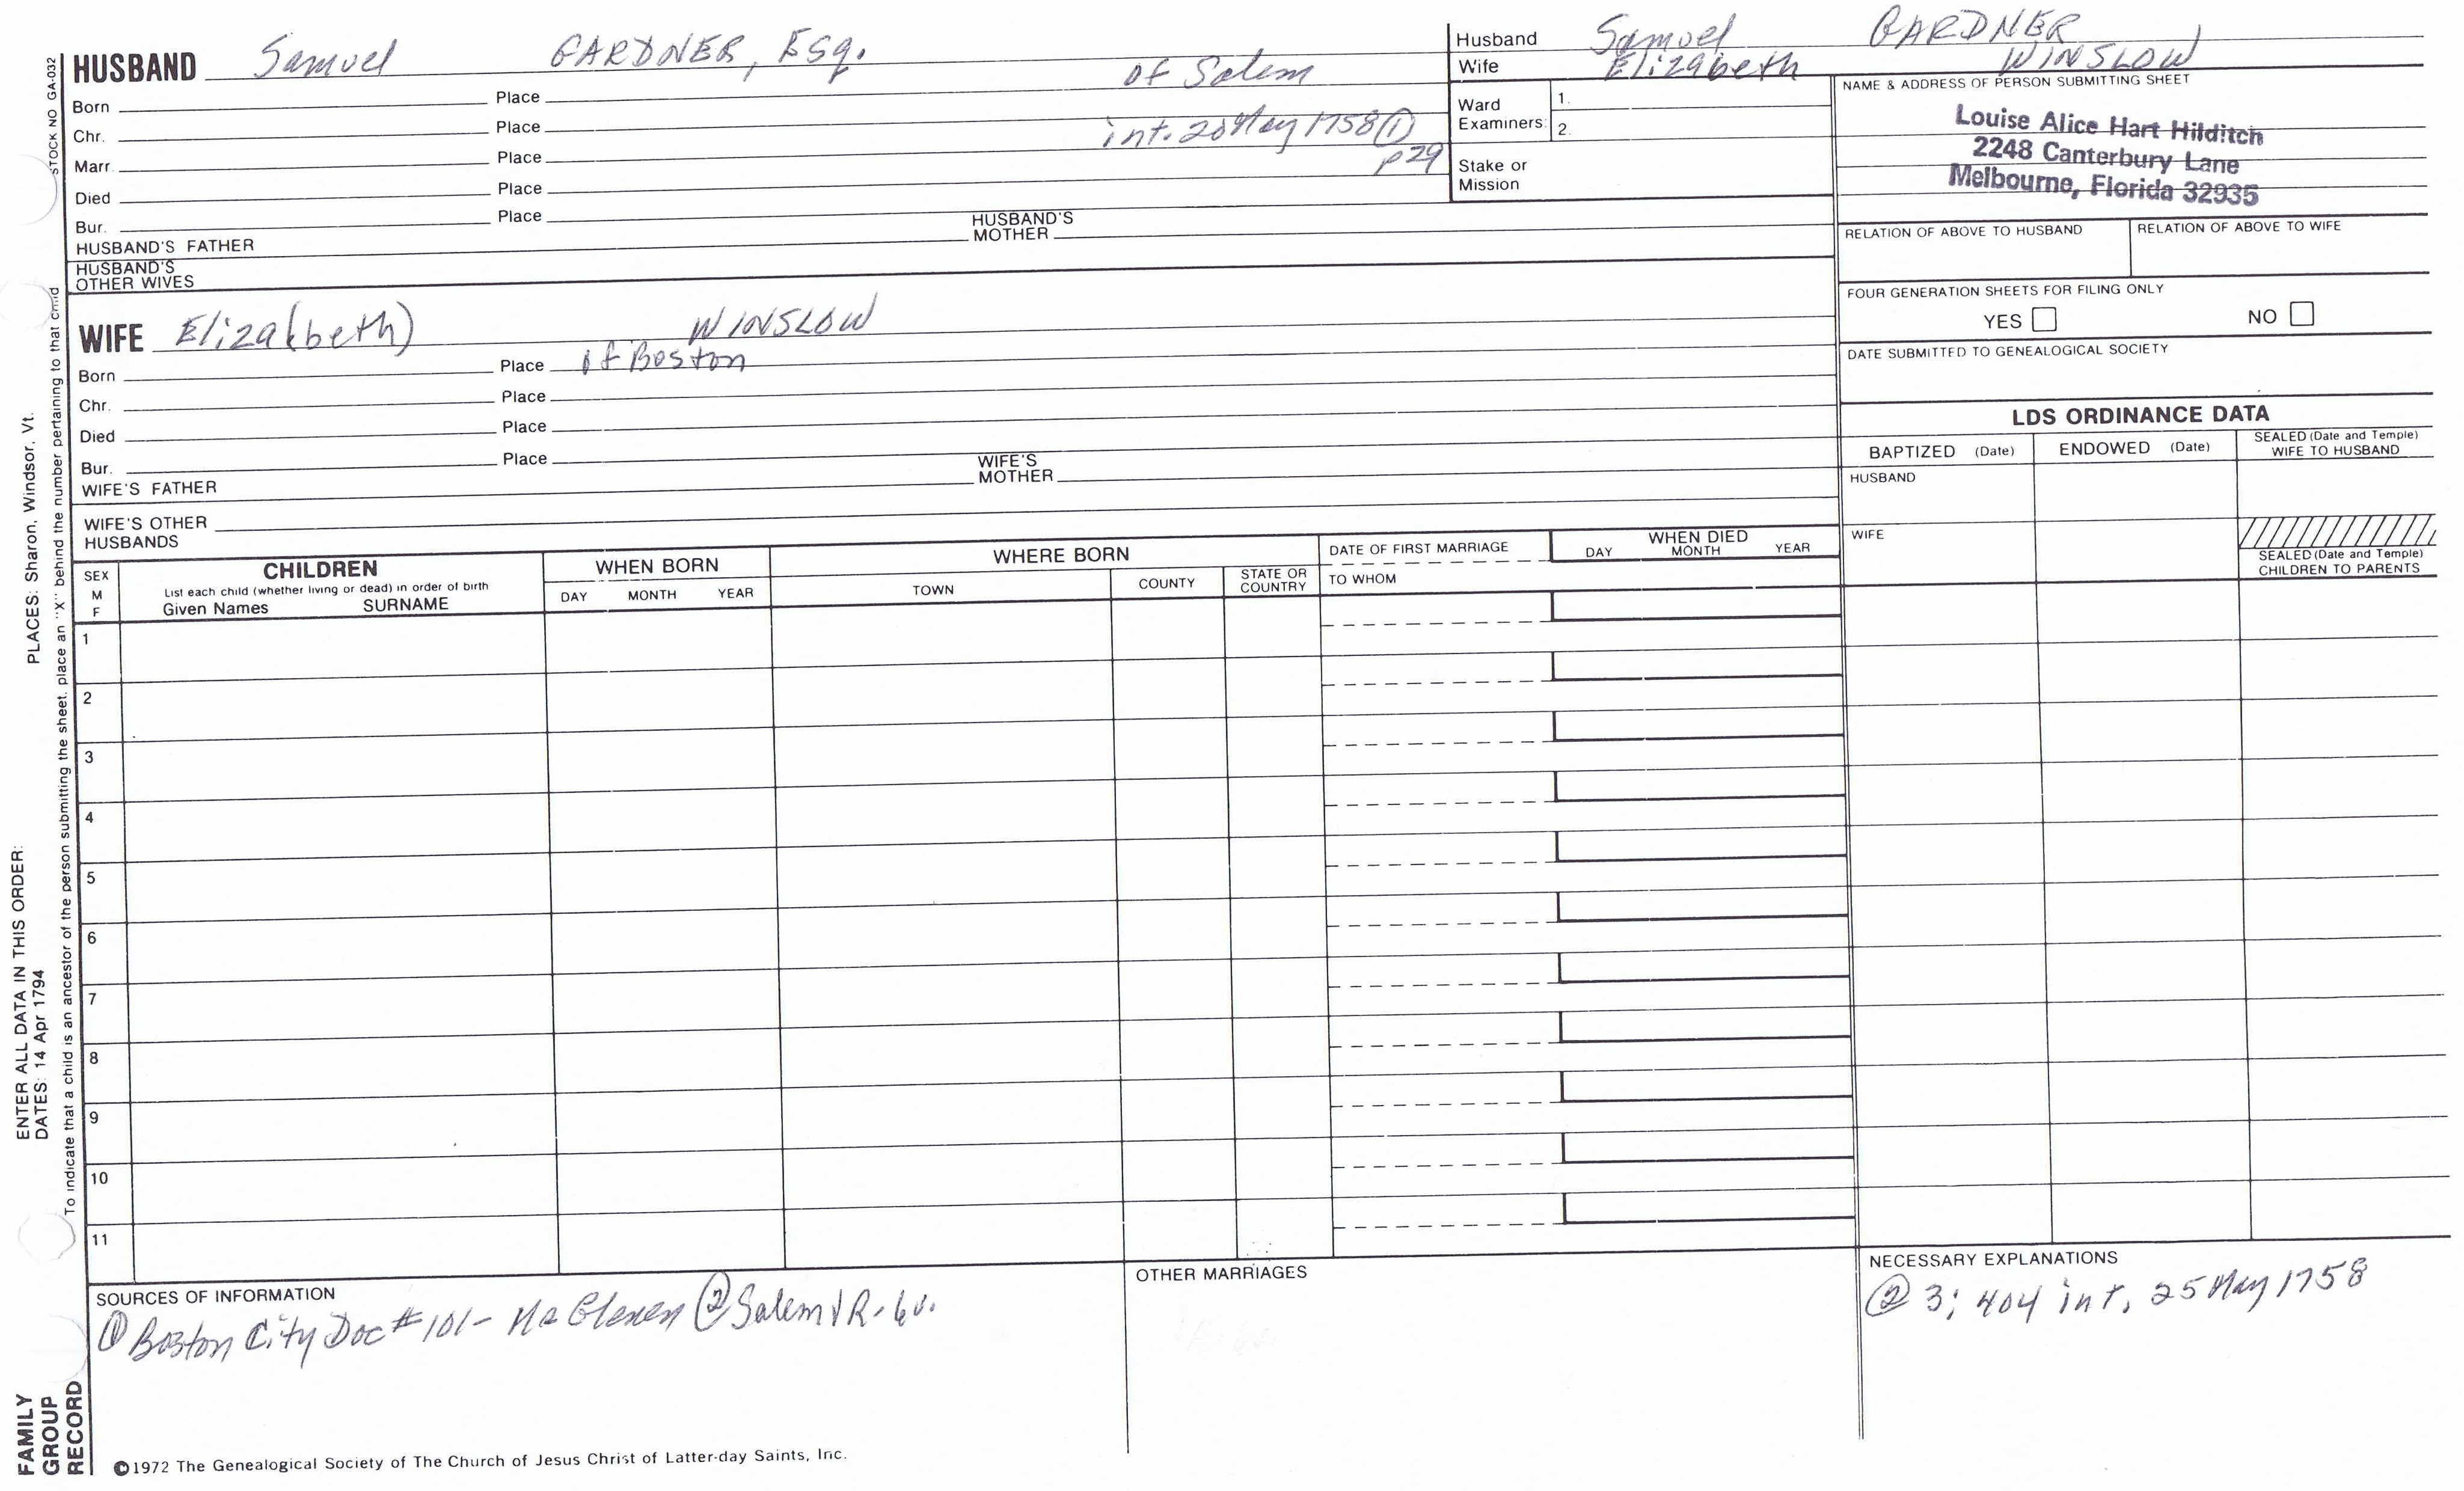 STOCK NO GA-032
HUSBAND Samuel GARDNER, Esq. of Salem
Born Place
Chr. Place int. 20 May 1758 ①
Marr. Place p 29
Died Place
Bur. Place
HUSBAND'S FATHER HUSBAND'S MOTHER
HUSBAND'S OTHER WIVES
WIFE Eliza(beth) WINSLOW
Born Place of Boston
Chr. Place
Died Place
Bur. Place
WIFE'S FATHER WIFE'S MOTHER
WIFE'S OTHER HUSBANDS
Husband Samuel GARDNER
Wife Elizabeth WINSLOW
Ward Examiners: 1.
2.
Stake or Mission
NAME & ADDRESS OF PERSON SUBMITTING SHEET
Louise Alice Hart Hilditch
2248 Canterbury Lane
Melbourne, Florida 32935
RELATION OF ABOVE TO HUSBAND RELATION OF ABOVE TO WIFE
FOUR GENERATION SHEETS FOR FILING ONLY
YES NO
DATE SUBMITTED TO GENEALOGICAL SOCIETY
LDS ORDINANCE DATA
BAPTIZED (Date) ENDOWED (Date) SEALED (Date and Temple) WIFE TO HUSBAND
HUSBAND
WIFE
SEALED (Date and Temple) CHILDREN TO PARENTS
SEX M F
CHILDREN
List each child (whether living or dead) in order of birth
Given Names SURNAME
WHEN BORN
DAY MONTH YEAR
WHERE BORN
TOWN COUNTY STATE OR COUNTRY
DATE OF FIRST MARRIAGE
TO WHOM
WHEN DIED
DAY MONTH YEAR
1
2
3
4
5
6
7
8
9
10
11
SOURCES OF INFORMATION
① Boston City Doc # 101- ② Salem VR- 6v.
OTHER MARRIAGES
NECESSARY EXPLANATIONS
② 3; 404 int, 25 May 1758
©1972 The Genealogical Society of The Church of Jesus Christ of Latter-day Saints, Inc.
FAMILY
GROUP
RECORD
ENTER ALL DATA IN THIS ORDER:
DATES: 14 Apr 1794
PLACES: Sharon, Windsor, Vt.
To indicate that a child is an ancestor of the person submitting the sheet, place an "X" behind the number pertaining to that child